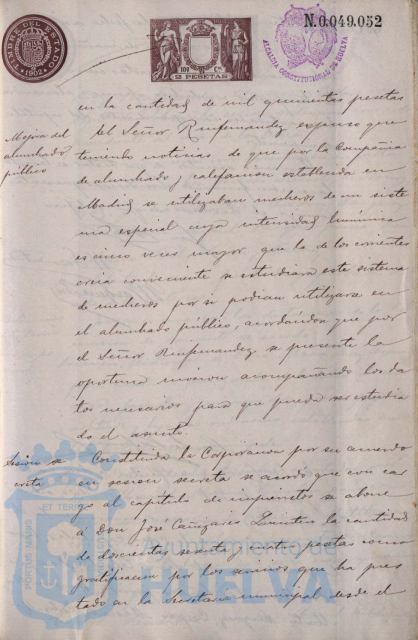 TIMBRE DEL ESTADO
1902
2 PESETAS
N. 0.049.052
ALCALDIA CONSTITUCIONAL DE HUELVA
en la cantidad de mil quinientas pesetas
Mejora del alumbrado público
El Señor Rinfernandez expuso que
teniendo noticias de que por la Compañia
de alumbrado y calefaccion establecida en
Madrid se utilizaban mecheros de un siste
ma especial cuya intensidad luminica
es cinco veces mayor que la de los corrientes
creia conveniente se estudiara este sistema
de mecheros por si podian utilizarse en
el alumbrado público, acordándose que por
el Señor Rinfernandez se presente la
oportuna mocion acompañando los da
tos necesarios para que pueda ser estudia
do el asunto.
Sesion se
creta
Constituida la Corporacion por su acuerdo
en sesion secreta se acordó que con car
go al capitulo de imprevistos se abone
á Don José Cañizares Quintin la cantidad
de doscientas sesenta y cuatro pesetas como
gratificacion por los servicios que ha pres
tado en la Secretaria municipal desde el
PORTUS MARIS ET TERRAE
Ayuntamiento de
HUELVA